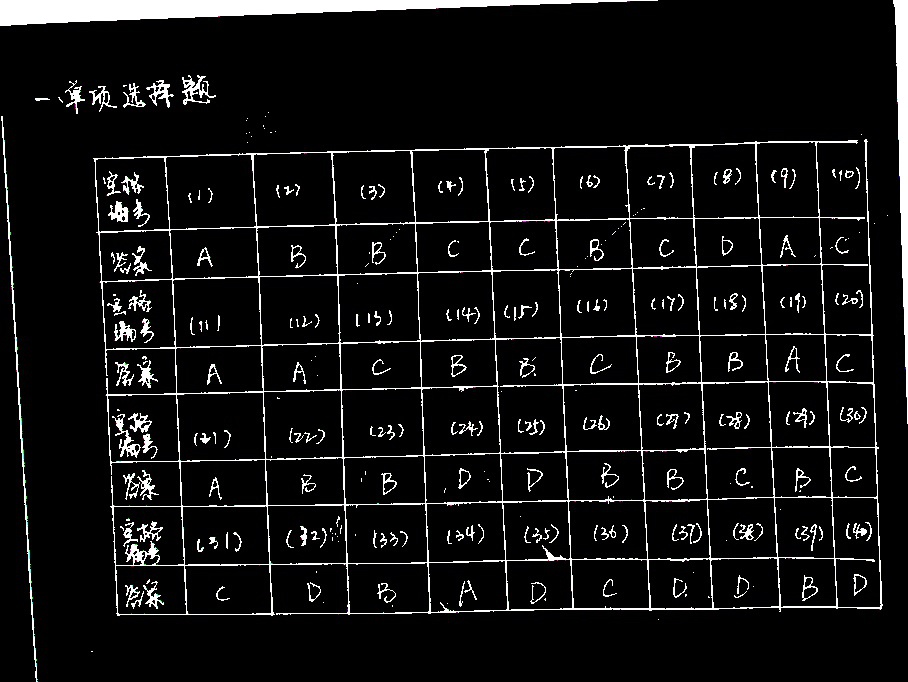 一、单项选择题
空格编号 (1) (2) (3) (4) (5) (6) (7) (8) (9) (10)
答案 A B B C C B C D A C
空格编号 (11) (12) (13) (14) (15) (16) (17) (18) (19) (20)
答案 A A C B B C B B A C
空格编号 (21) (22) (23) (24) (25) (26) (27) (28) (29) (30)
答案 A B B D D B B C B C
空格编号 (31) (32) (33) (34) (35) (36) (37) (38) (39) (40)
答案 C D B A D C D D B D